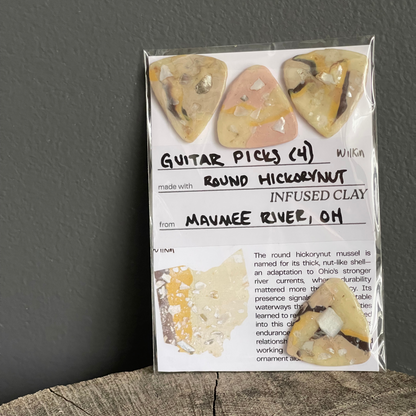 GUITAR PICKS (4) Wilkin
made with ROUND HICKORYNUT
INFUSED CLAY
from MAUMEE RIVER, OH
The round hickorynut mussel is
named for its thick, nut-like shell—
an adaptation to Ohio's stronger
river currents, where durability
mattered more
presence
waterways
learned to
into this
endurance
working
ornament